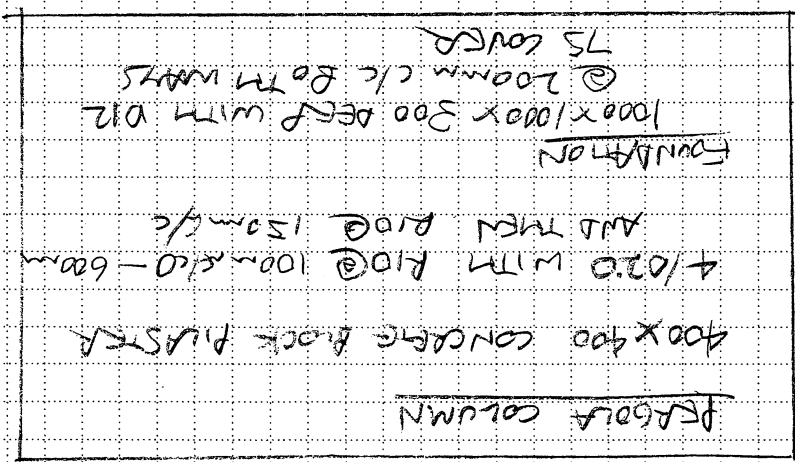 PERGOLA COLUMN
400 x 400 CONCRETE BLOCK PILASTER
4/D20 WITH R10@ 100mm c/c 0 - 600mm
AND THEN R10@ 150mm c/c
FOUNDATION
1000 x 1000 x 300 DEEP WITH D12
@ 200mm c/c BOTH WAYS
75 COVER